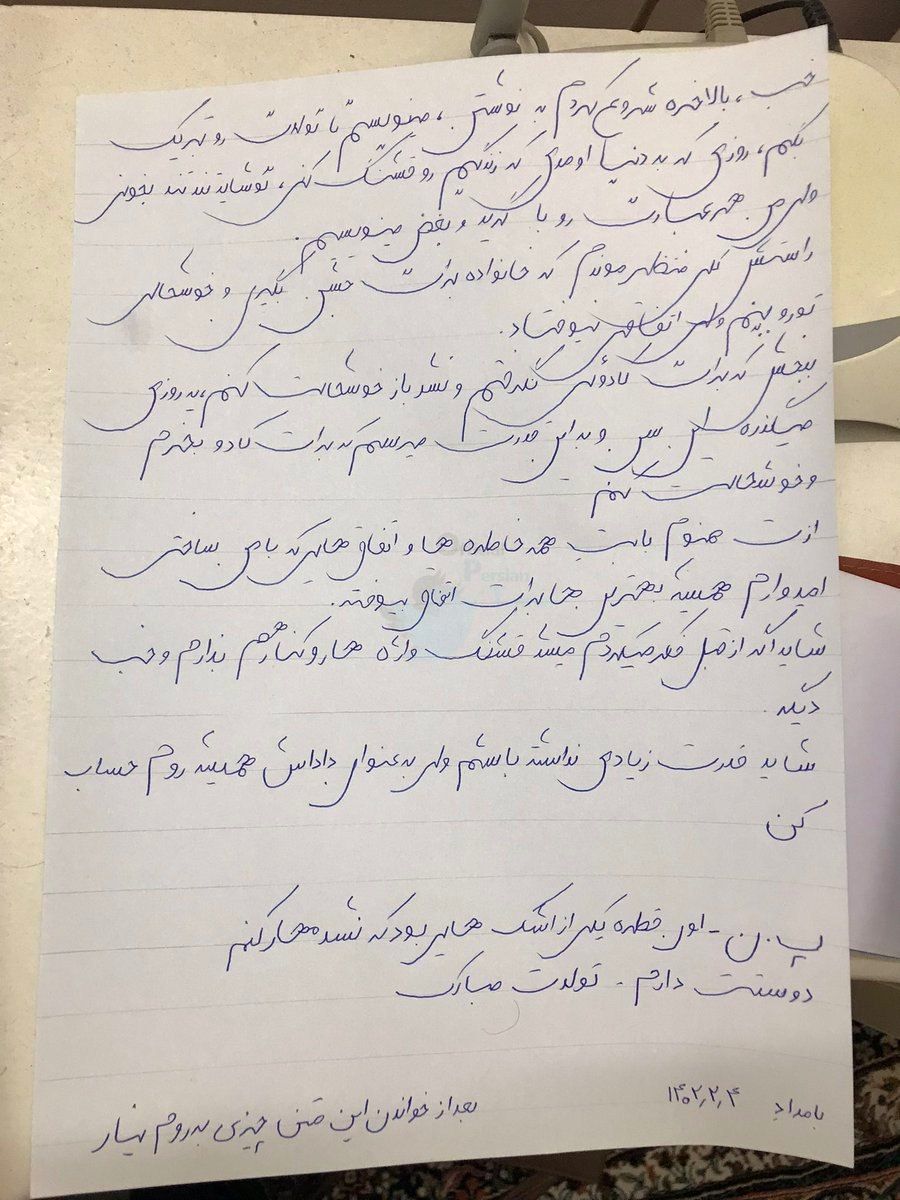 خب، بالاخره شروع کردم به نوشتن، مینویسم تا تولدت رو تبریک
بگم، روزی که به دنیا اومدی که زندگیم رو قشنگ کنی، تو شاید تند تند بخونی
ولی من همه عبارت رو با گریه و بغض مینویسم.
راستش کلی منتظر موندم که خانواده برات جشن بگیرن و خوشحالی
تورو ببینم ولی اتفاقی نیوفتاد.
ببخش که برات کادوئی نگرفتم و نشد باز خوشحالت کنم، یه روزی
میگذره این سن و به این قدرت میرسم که برات کادو بخرم
و خوشحالت کنم
ازت ممنوم بابت همه خاطره ها و اتفاق هایی که با من ساختی
امیدوارم همیشه بهترین ها برات اتفاق بیوفته.
شاید اگه از قبل فکر میکردم میشد قشنگ واژه هارو کنار هم بذارم و خب
دیگه.
شاید قدرت زیادی نداشته باشم ولی به عنوان داداش همیشه روم حساب
کن
پ.ن - اون قطره یکی از اشک هایی بود که نشد مهار کنم
دوستت دارم - تولدت مبارک
بامداد ۱۴۰۲٫۲٫۴
بعد از خواندن این متن چیزی به روم نیار
Persian